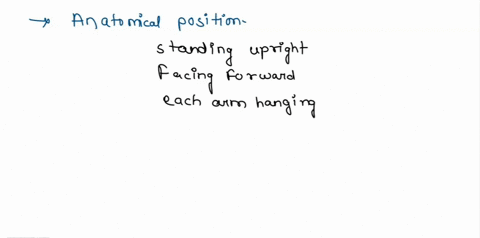 → Anatomical position.
standing upright
facing forward
each arm hanging